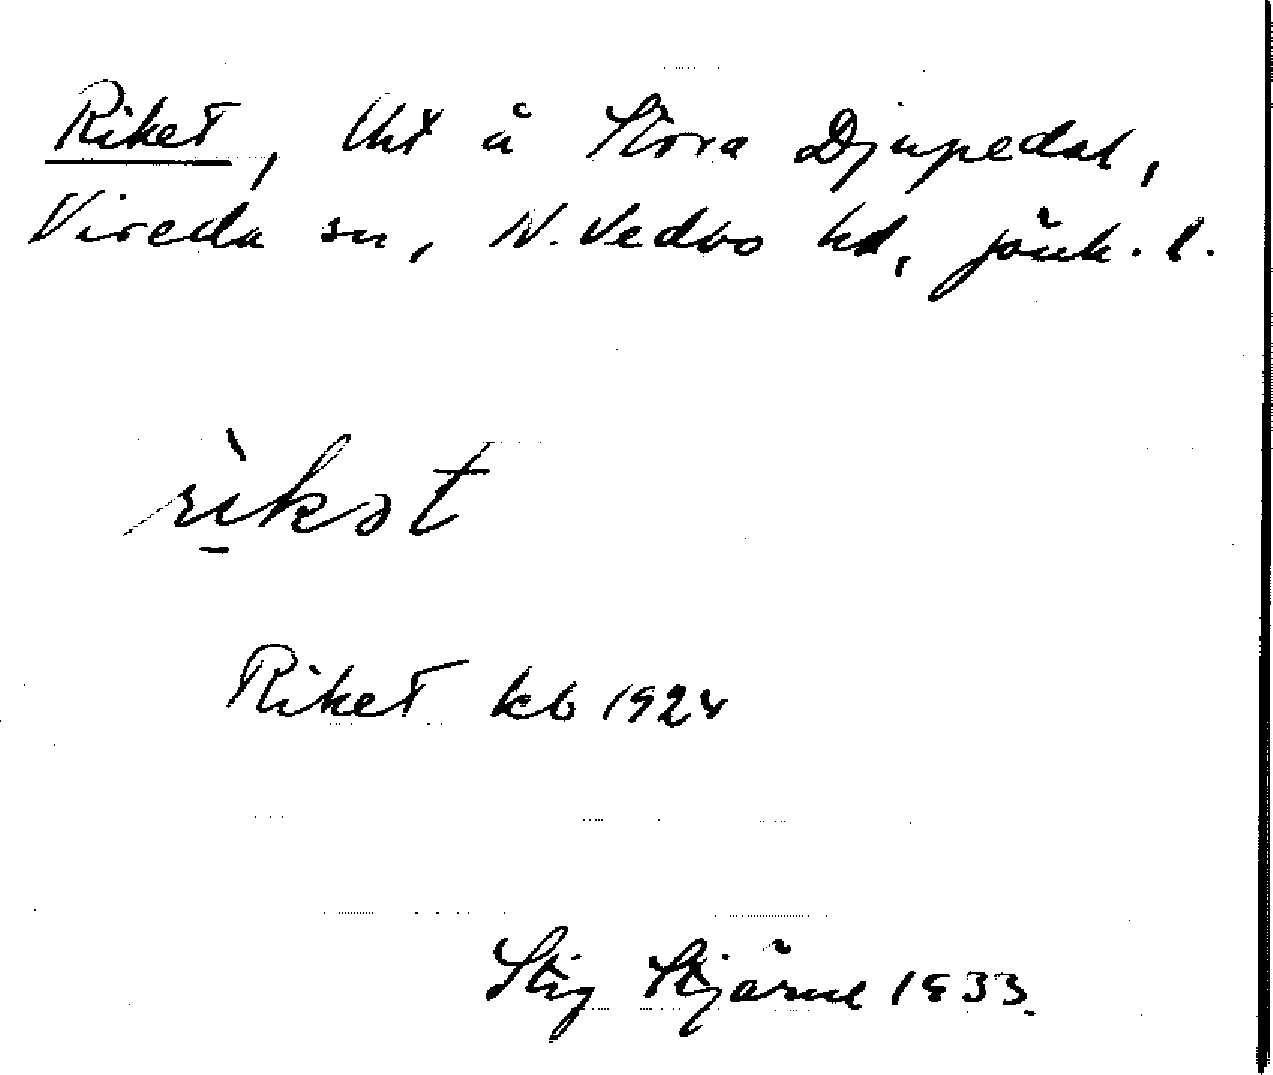 Riket, lht å Stora Djupedal,
Vireda sn, N. Vedbo hd, Jönk. l.
rìkət
Riket kb 1924
Stig Stjärne 1933.